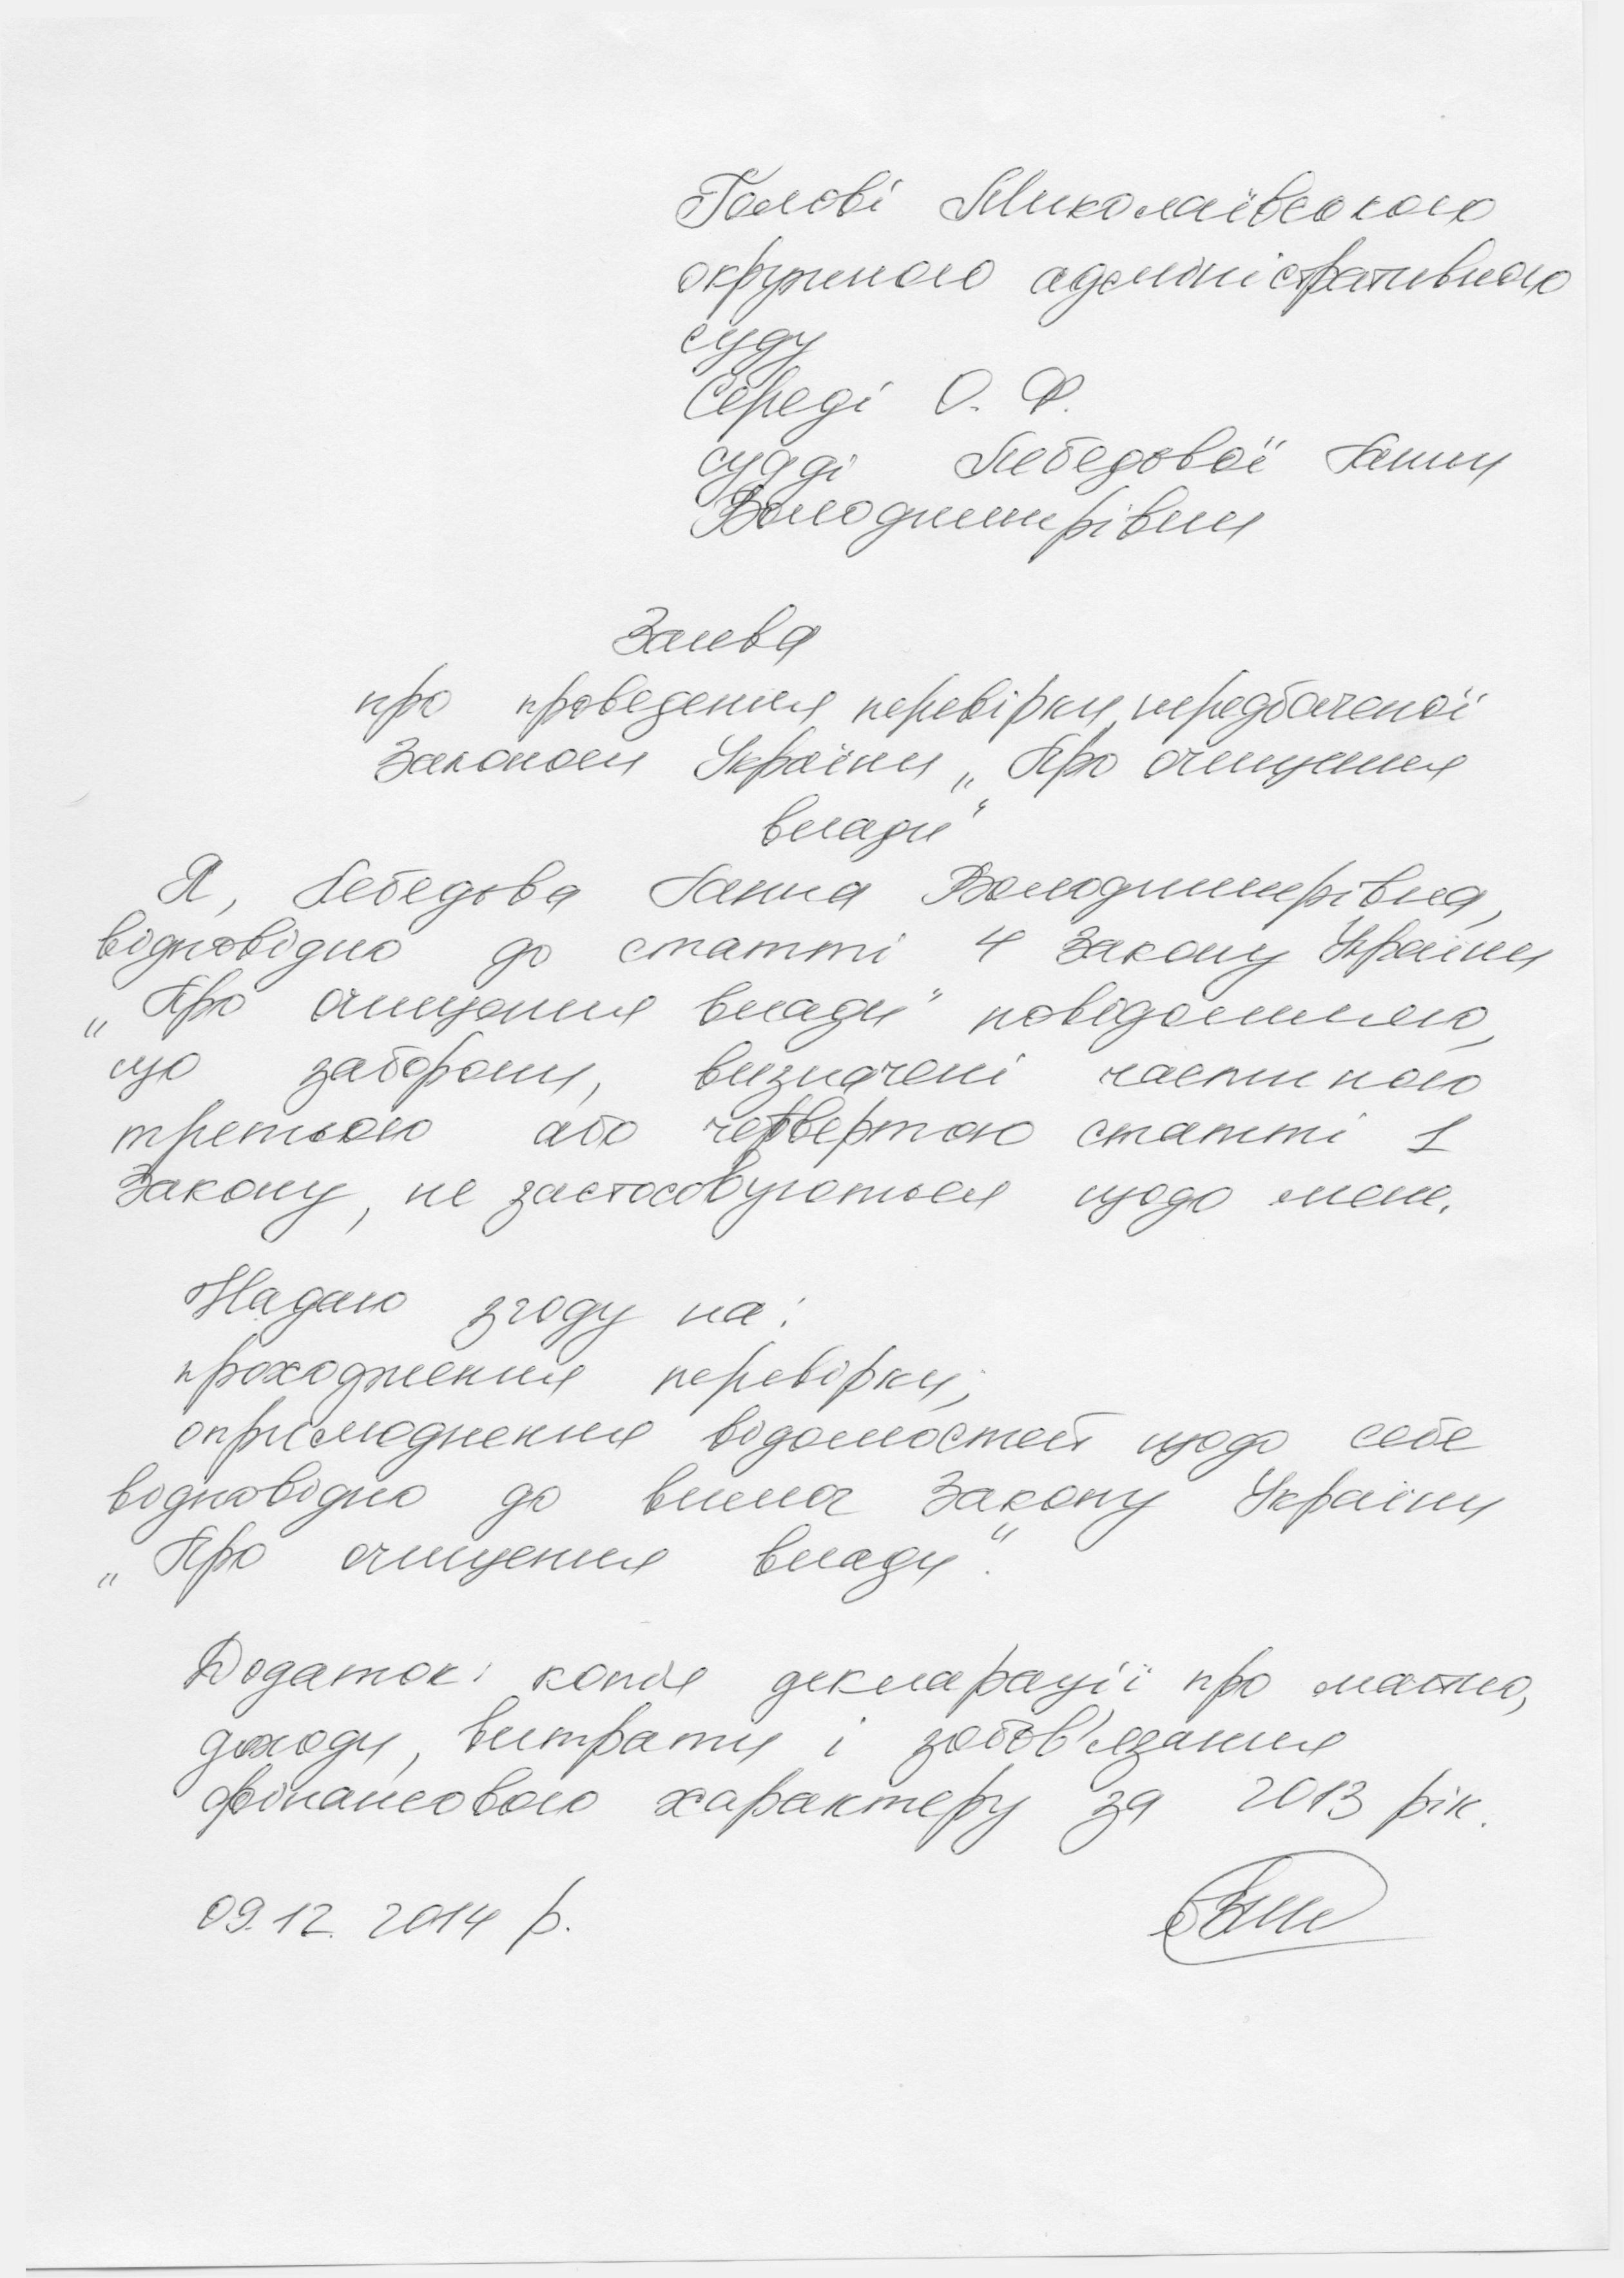 Голові Миколаївського
окружного адміністративного
суду
Середі О. Ф.
судді Лебедової Ганни
Володимирівни
Заява
про проведення перевірки, передбаченої
Законом України „Про очищення
влади“
Я, Лебедова Ганна Володимирівна,
відповідно до статті 4 Закону України
„Про очищення влади“ повідомляю,
що заборони, визначені частиною
третьою або четвертою статті 1
Закону, не застосовуються щодо мене.
Надаю згоду на:
проходження перевірки;
оприлюднення відомостей щодо себе
відповідно до вимог Закону України
„Про очищення влади“.
Додаток: копія декларації про майно,
доходи, витрати і зобов'язання
фінансового характеру за 2013 рік.
09.12.2014 р.